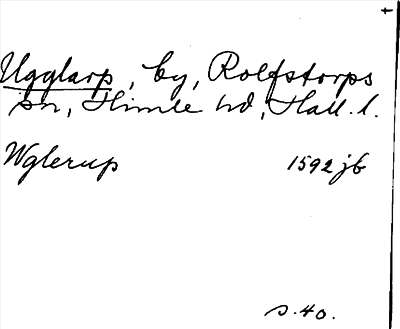 Ugglarp, by, Rolfstorps
sn, Himle hd, Hall. l.
Wglerup 1592 jb
s. 40.